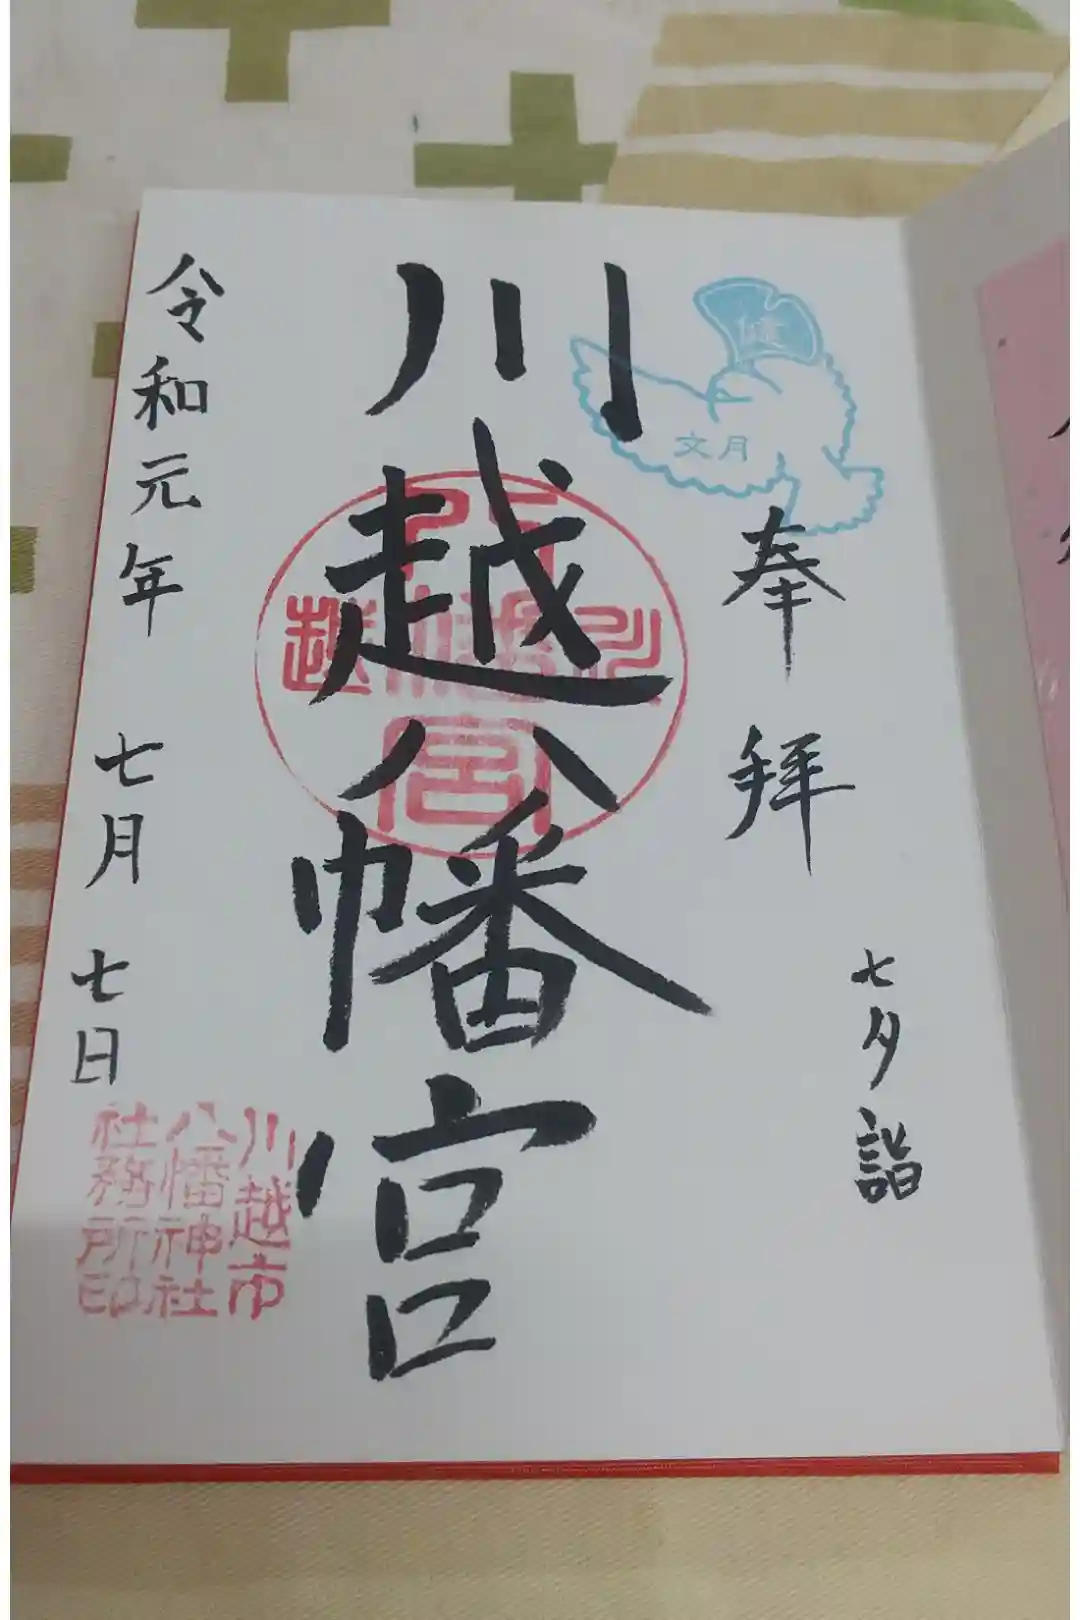 奉拝
七夕詣
文月
川越八幡宮
川越
八幡宮
令和元年 七月七日
川越市
八幡神社
社務所印